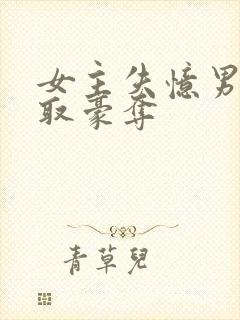 女主失憶男
取豪奪
青草兒